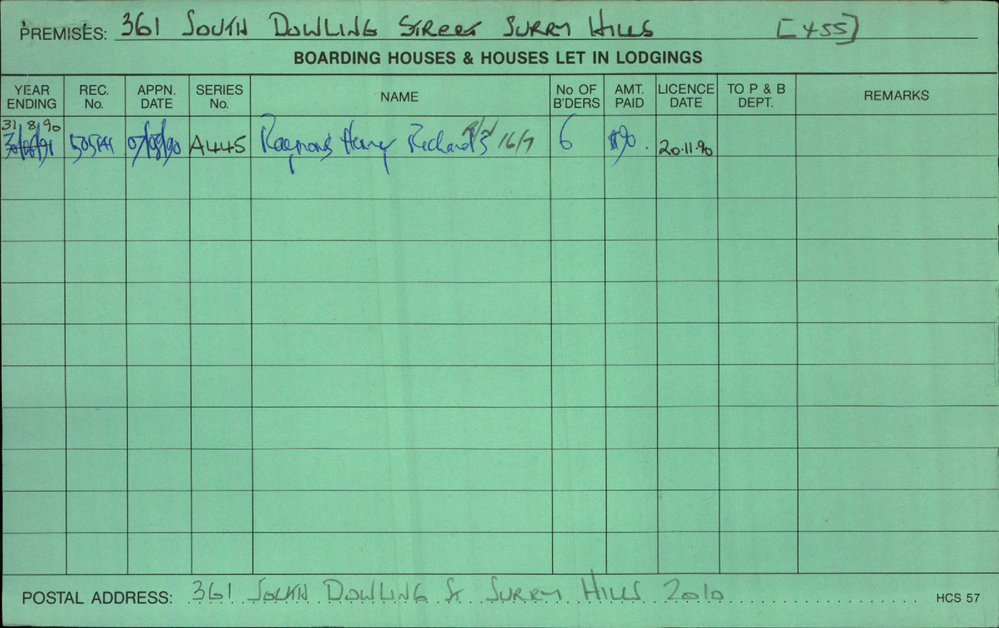 PREMISES: 361 SOUTH DOWLING STREET SURRY HILLS [455]
BOARDING HOUSES & HOUSES LET IN LODGINGS
YEAR ENDING REC. No. APPN. DATE SERIES No. NAME No OF B'DERS AMT. PAID LICENCE DATE TO P & B DEPT. REMARKS
31/8/90
07/08/90 A445 Raymond Henry Richards 16/7 6 $90. 20.11.90
POSTAL ADDRESS: 361 SOUTH DOWLING St SURRY HILLS 2010
HCS 57